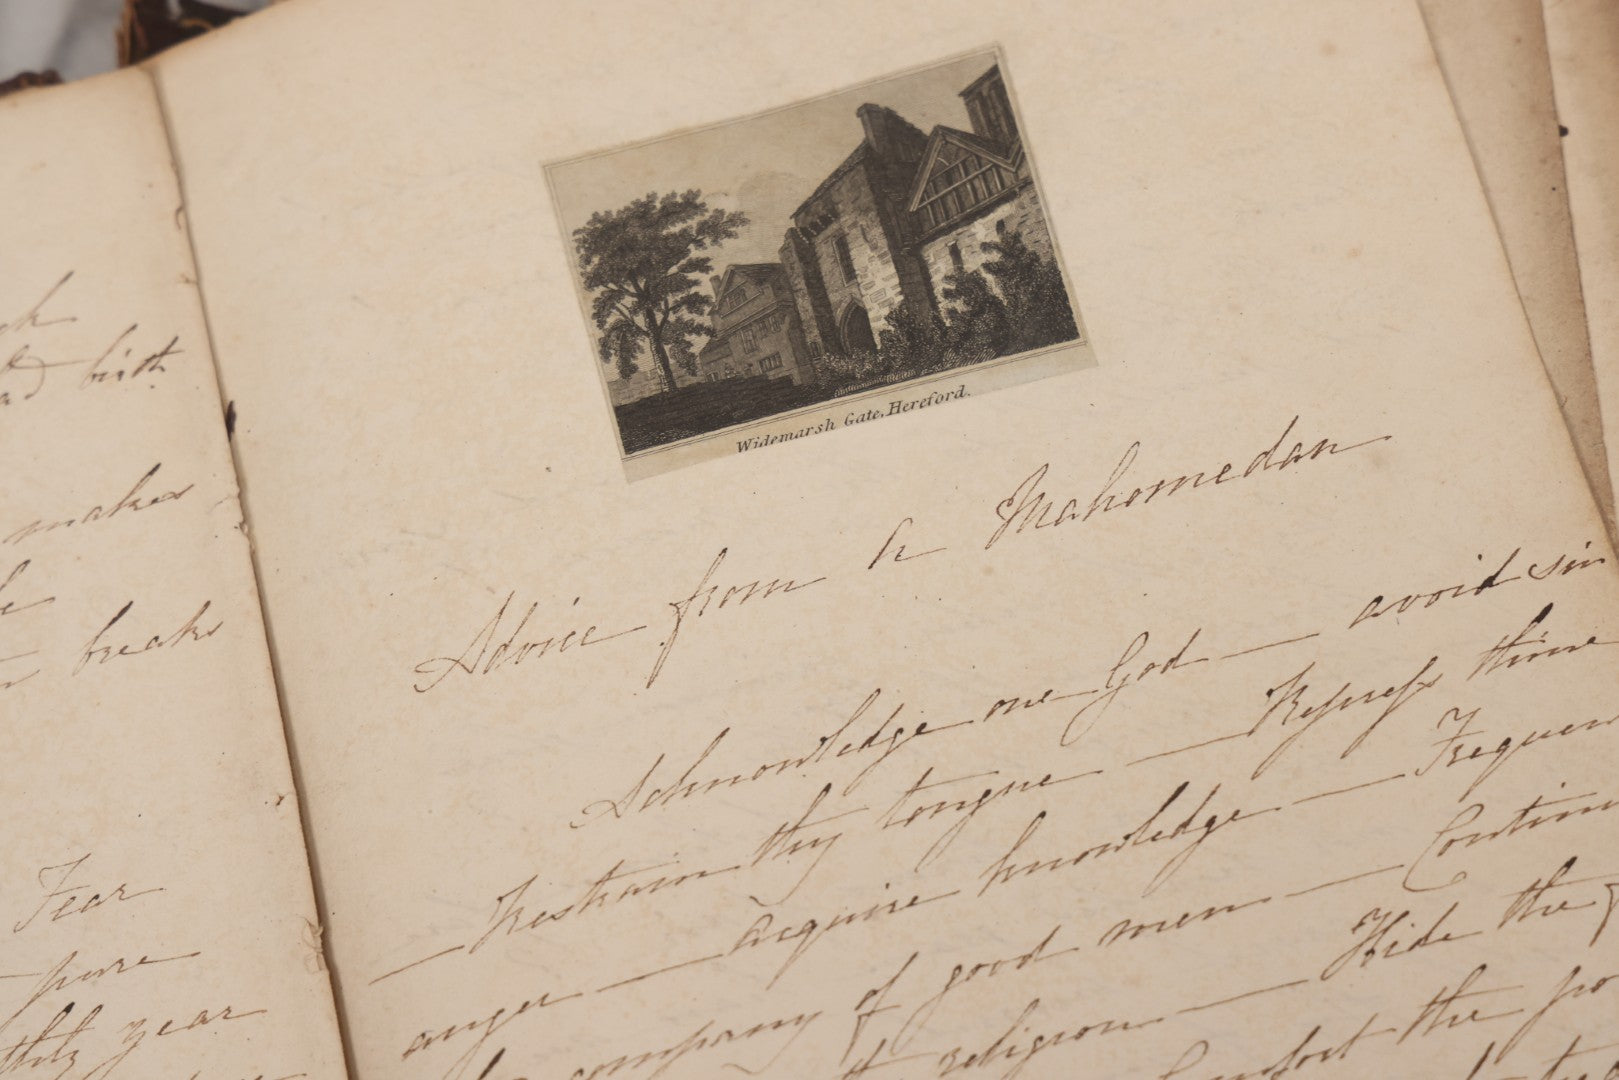 birth
makes
breaks
Fear
pure
year
Widemarsh Gate, Hereford.
Advice from a Mahomedan
Acknowledge one God — avoid sin
— Restrain thy tongue — Repress thine
anger — acquire knowledge — Frequen
company of good men — Continu
religion — Hide the
Comfort the po